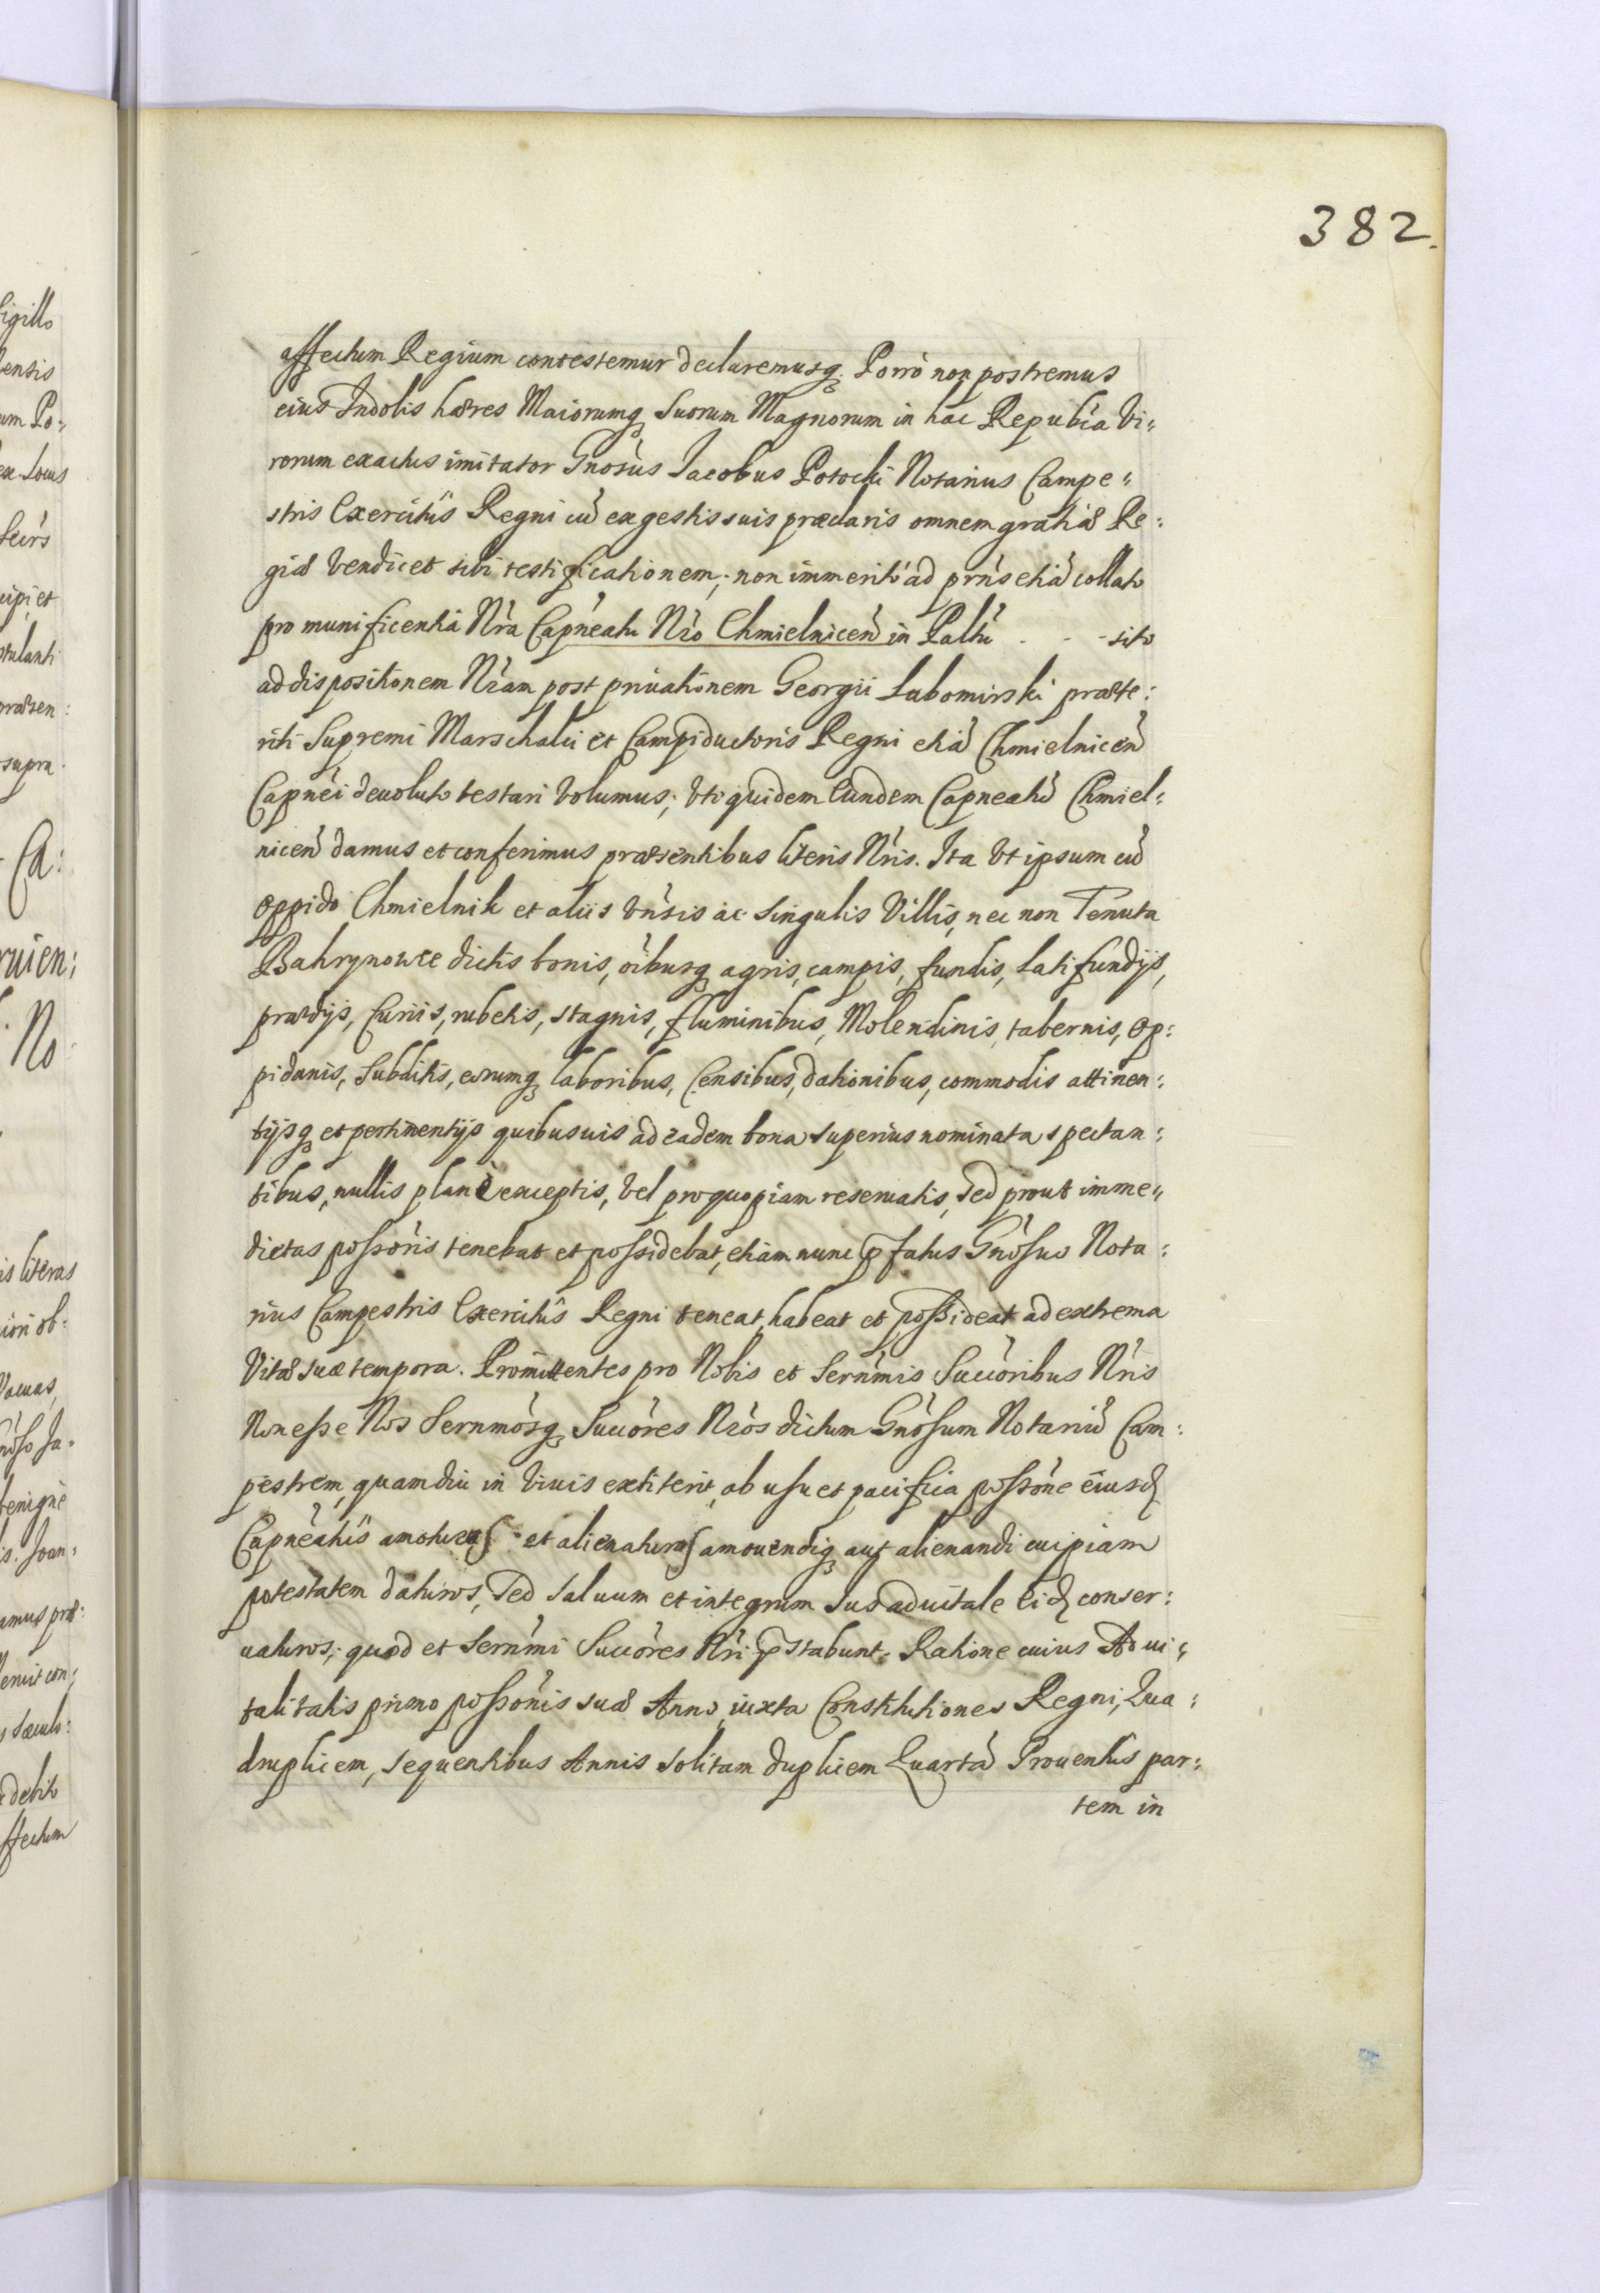 382.
affectum Regium contestemur declaremusq. Porrò non postremus
eius Indolis hæres Maiorumq Suorum Magnorum in hac Republca Vi:
rorum exactus imitator Gnosus Jacobus Potocki Notarius Campe:
stris Exercitûs Regni cũ ex gestis suis præclaris omnem gratiæ Re:
giæ vendicet sibi testificationem; non immeritò ad prńs etiã collato
pro munificentiâ Nrâ Capneatu Nro Chmielnicen in Paltũ . - - sito
ad dispositionem Nram post priuationem Georgii Lubomirski præte:
riti Supremi Marschalci et Campiductoris Regni etiã Chmielnicen
Capnei deuoluto testari Volumus; Vti quidem Eundem Capneatũ Chmiel:
nicen damus et conferimus præsentibus literis Nris. Ita Vt ipsum cũ
Oppido Chmielnik et aliis Vnsis ac Singulis Villis, nec non Tenuta
Bahrynowce dictis bonis, oibusq agris, campis, fundis, Latifundijs,
prædijs, Curiis, rubetis, stagnis, fluminibus, Molendinis, tabernis, Op:
pidanis, Subditis, eorumq laboribus, Censibus, dationibus, commodis attinen:
tijsq et pertinentijs quibusuis ad eadem bona superius nominata spectan:
tibus, nullis planè exceptis, Vel pro quopiam reseruatis, Sed prout imme:
dietas possoris tenebat et possidebat, etiam nunc pfatus Gnosus Nota:
rius Campestris Exercitûs Regni teneat, habeat et possideat ad extrema
Vitæ suæ tempora. Promittentes pro Nobis et Sernmis Succoribus Nris
Non esse Nos Sernmosq Succores Nros dictum Gnosum Notariũ Cam:
pestrem, quamdiu in Viuis extiterit, ab usu et pacifica possone eiusd
Capneatûs amoturos et alienaturos amouendiq aut alienandi cuipiam
potestatem daturos, Sed Saluum et integrum Ius aduitale Eid conser:
uaturos; quod et Sernmi Succores Nri pstabunt. Ratione cuius Adui:
talitatis primo possonis suæ Anno, iuxta Constitutiones Regni, Qua:
druplicem, Sequentibus Annis Solitam duplicem Quartã Prouentûs par:
tem in